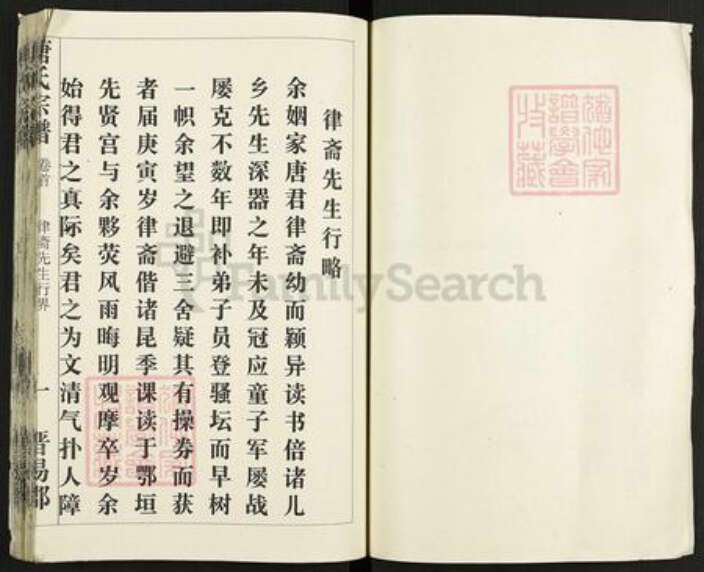 律斋先生行略
余姻家唐君律斋幼而颖异读书倍诸儿
乡先生深器之年未及冠应童子军屡战
屡克不数年即补弟子员登骚坛而早树
一帜余望之退避三舍疑其有操券而获
者届庚寅岁律斋偕诸昆季课读于鄂垣
先贤宫与余夥荧风雨晦明观摩卒岁余
始得君之真际矣君之为文清气扑人障
唐氏宗谱 卷首 律斋先生行界 一 晋易郡
FamilySearch